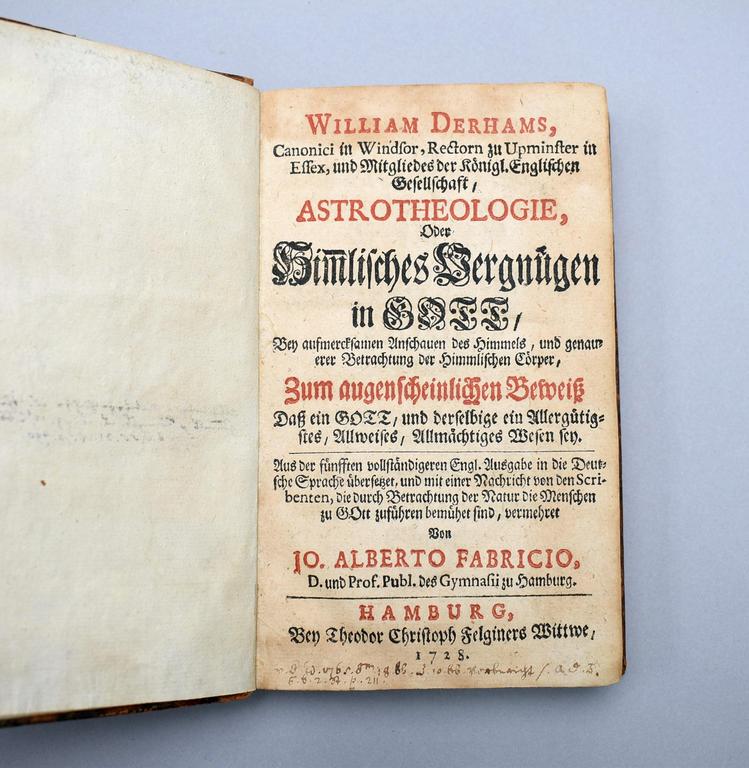 WILLIAM DERHAMS,
Canonici in Windsor, Rectorn zu Upminster in
Essex, und Mitgliedes der Königl. Englischen
Gesellschaft/
ASTROTHEOLOGIE,
Oder
Him̅lisches Vergnügen
in GOTT/
Bey aufmercksamen Anschauen des Himmels, und genau-
erer Betrachtung der Himmlischen Cörper,
Zum augenscheinlichen Beweiß
Daß ein GOTT/ und derselbige ein Allergütig-
stes/ Allweises/ Allmächtiges Wesen sey.
Aus der fünfften vollständigeren Engl. Ausgabe in die Deut-
sche Sprache übersetzet, und mit einer Nachricht von den Scri-
benten, die durch Betrachtung der Natur die Menschen
zu GOtt zuführen bemühet sind, vermehret
Von
JO. ALBERTO FABRICIO,
D. und Prof. Publ. des Gymnasii zu Hamburg.
HAMBURG,
Bey Theodor Christoph Felginers Wittwe/
1728.
Vorbericht
p. 211.